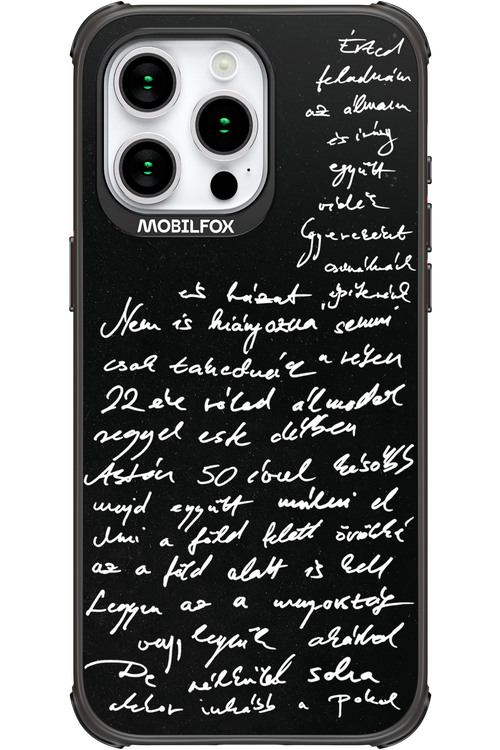 MOBILFOX
Érted
feladnám
az álmaim
és így
együtt
veled
Gyerekeket
csinálnánk
és házat építenénk
Nem is hiányozna semmi
csak takednác a réten
22 éve rólad álmodok
reggel este délben
Aztán 50 évvel később
majd együtt múlni el
Ami a föld felett örökké
az a föld alatt is kell
Legyen az a mennyország
vagy legyünk akárhol
De nélküled soha
akkor inkább a Pokol